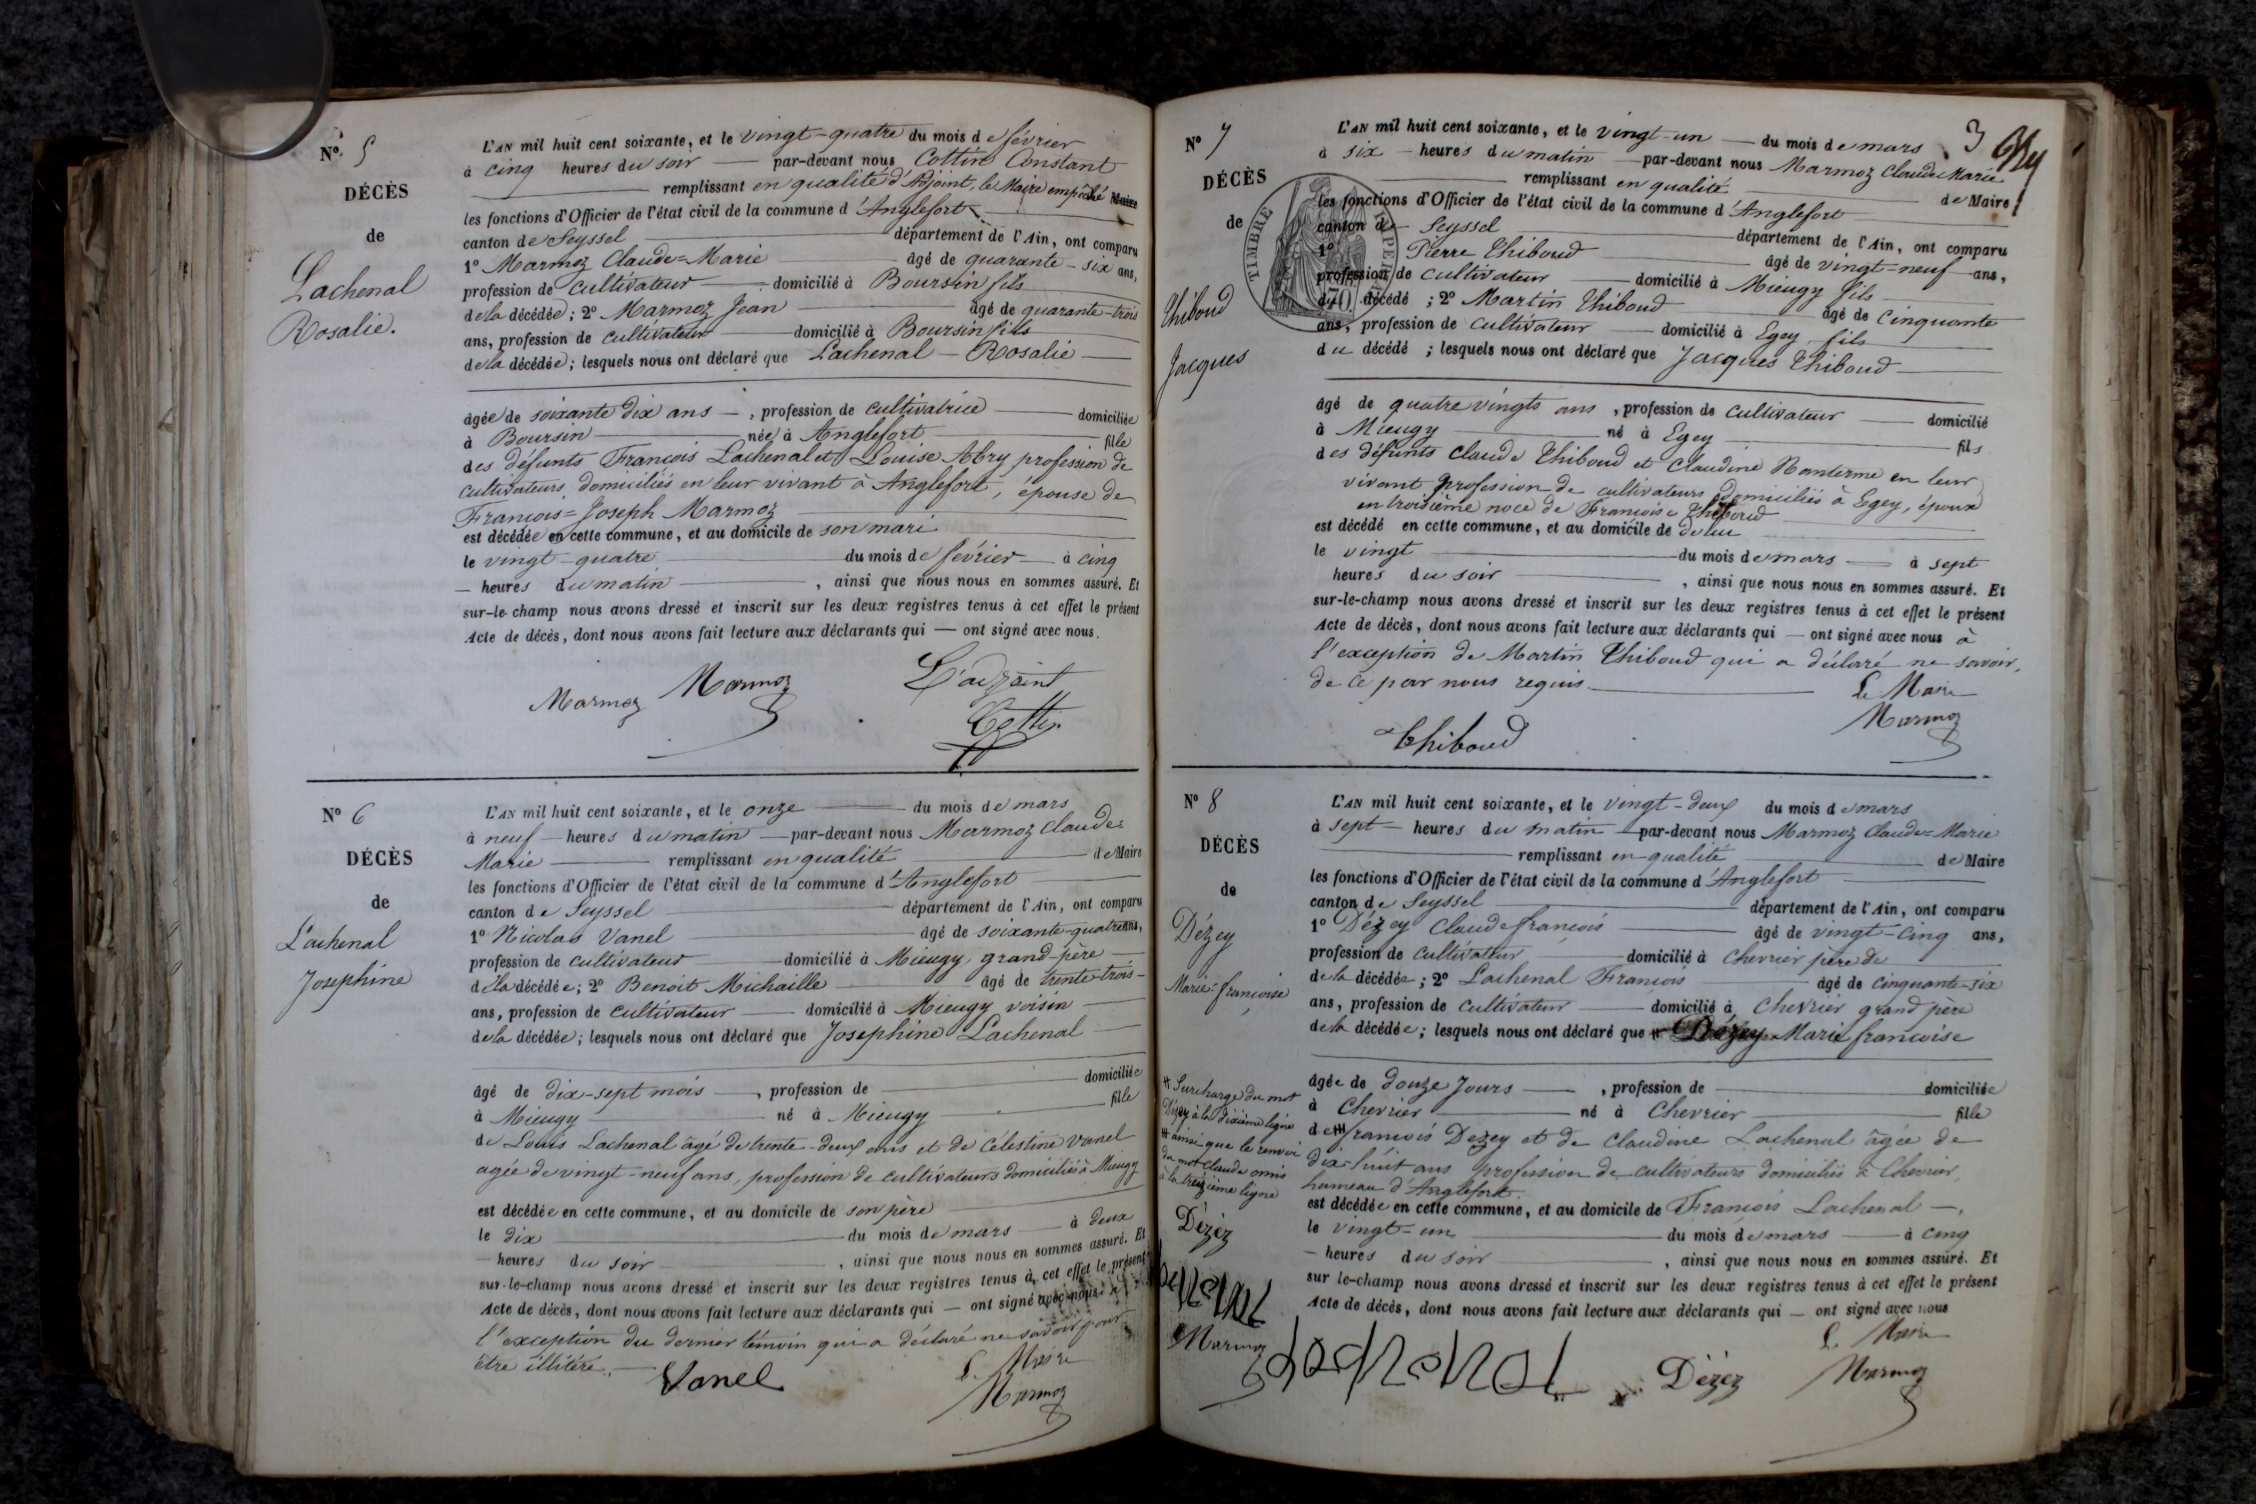 N° 5
DÉCÈS
de
Lachenal
Rosalie.
L'AN mil huit cent soixante, et le vingt-quatre du mois de février
à cinq heures du soir par-devant nous Cottin Constant
remplissant en qualité d'Adjoint, le Maire empêché Maire
les fonctions d'Officier de l'état civil de la commune d'Anglefort
canton de Seyssel département de l'Ain, ont comparu
1° Marmoz Claude=Marie âgé de quarante-six ans,
profession de cultivateur domicilié à Boursin fils
de la décédée; 2° Marmoz Jean âgé de quarante-trois
ans, profession de cultivateur domicilié à Boursin fils
de la décédée; lesquels nous ont déclaré que Lachenal - Rosalie
âgée de soixante dix ans, profession de cultivatrice domiciliée
à Boursin née à Anglefort fille
des défunts François Lachenal et Louise Abry profession de
cultivateurs domiciliés en leur vivant à Anglefort, épouse de
François=Joseph Marmoz
est décédée en cette commune, et au domicile de son mari
le vingt-quatre du mois de février à cinq
heures du matin, ainsi que nous nous en sommes assuré. Et
sur-le-champ nous avons dressé et inscrit sur les deux registres tenus à cet effet le présent
Acte de décès, dont nous avons fait lecture aux déclarants qui — ont signé avec nous.
Marmoz Marmoz L'adjoint
Cottin
N° 6
DÉCÈS
de
Lachenal
Josephine
L'AN mil huit cent soixante, et le onze du mois de mars
à neuf heures du matin par-devant nous Marmoz Claude=
Marie remplissant en qualité de Maire
les fonctions d'Officier de l'état civil de la commune d'Anglefort
canton de Seyssel département de l'Ain, ont comparu
1° Nicolas Vanel âgé de soixante-quatre ans,
profession de cultivateur domicilié à Mieugy, grand-père
de la décédée; 2° Benoit Michaille âgé de trente-trois
ans, profession de cultivateur domicilié à Mieugy voisin
de la décédée; lesquels nous ont déclaré que Josephine Lachenal
âgé de dix-sept mois, profession de domiciliée
à Mieugy né à Mieugy fille
de Louis Lachenal âgé de trente-deux ans et de Célestine Vanel
agée de vingt-neuf ans, profession de cultivateurs domiciliés à Mieugy
est décédée en cette commune, et au domicile de son père
le dix du mois de mars à deux
heures du soir, ainsi que nous nous en sommes assuré. Et
sur-le-champ nous avons dressé et inscrit sur les deux registres tenus à cet effet le présent
Acte de décès, dont nous avons fait lecture aux déclarants qui — ont signé avec nous à
l'exception du dernier témoin qui a déclaré ne savoir pour
être illitéré.
Vanel Le Maire
Marmoz
3
N° 7
DÉCÈS
de
Thiboud
Jacques
TIMBRE IMPERIAL
L'AN mil huit cent soixante, et le vingt-un du mois de mars
à six heures du matin par-devant nous Marmoz Claude Marie
remplissant en qualité de Maire
les fonctions d'Officier de l'état civil de la commune d'Anglefort
canton de Seyssel département de l'Ain, ont comparu
1° Pierre Thiboud âgé de vingt-neuf ans,
profession de cultivateur domicilié à Mieugy fils
du décédé; 2° Martin Thiboud âgé de cinquante
ans, profession de cultivateur domicilié à Egey fils
du décédé; lesquels nous ont déclaré que Jacques Thiboud
âgé de quatre vingts ans, profession de cultivateur domicilié
à Mieugy né à Egey fils
des défunts Claude Thiboud et Claudine Nanterme en leur
vivant profession de cultivateurs domiciliés à Egey, époux
en troisième noce de Françoise Thiboud
est décédé en cette commune, et au domicile de de lui
le vingt du mois de mars à sept
heures du soir, ainsi que nous nous en sommes assuré. Et
sur-le-champ nous avons dressé et inscrit sur les deux registres tenus à cet effet le présent
Acte de décès, dont nous avons fait lecture aux déclarants qui — ont signé avec nous à
l'exception de Martin Thiboud qui a déclaré ne savoir,
de ce par nous requis.
Le Maire
Thiboud Marmoz
N° 8
DÉCÈS
de
Dézey
Marie-françoise
L'AN mil huit cent soixante, et le vingt-deux du mois de mars
à sept heures du matin par-devant nous Marmoz Claude=Marie
remplissant en qualité de Maire
les fonctions d'Officier de l'état civil de la commune d'Anglefort
canton de Seyssel département de l'Ain, ont comparu
1° Dézey Claude françois âgé de vingt-cinq ans,
profession de cultivateur domicilié à Chevrier père de
de la décédée; 2° Lachenal François âgé de cinquante-six
ans, profession de cultivateur domicilié à Chevrier grand père
de la décédée; lesquels nous ont déclaré que Dézey Marie françoise
âgée de douze Jours, profession de domiciliée
à Chevrier né à Chevrier fille
de # françois Dezey et de Claudine Lachenal âgée de
dix-huit ans profession de cultivateurs domiciliés à Chevrier,
hameau d'Anglefort.
est décédée en cette commune, et au domicile de François Lachenal
le vingt-un du mois de mars à cinq
heures du soir, ainsi que nous nous en sommes assuré. Et
sur le-champ nous avons dressé et inscrit sur les deux registres tenus à cet effet le présent
Acte de décès, dont nous avons fait lecture aux déclarants qui — ont signé avec nous
# Surcharge du mot
Dézey à la dixième ligne
# ainsi que le renvoi
du mot Claude omis
à la treizième ligne
Dézéz
Lachenal
Marmoz
Lachenal Dézéz Le Maire
Marmoz